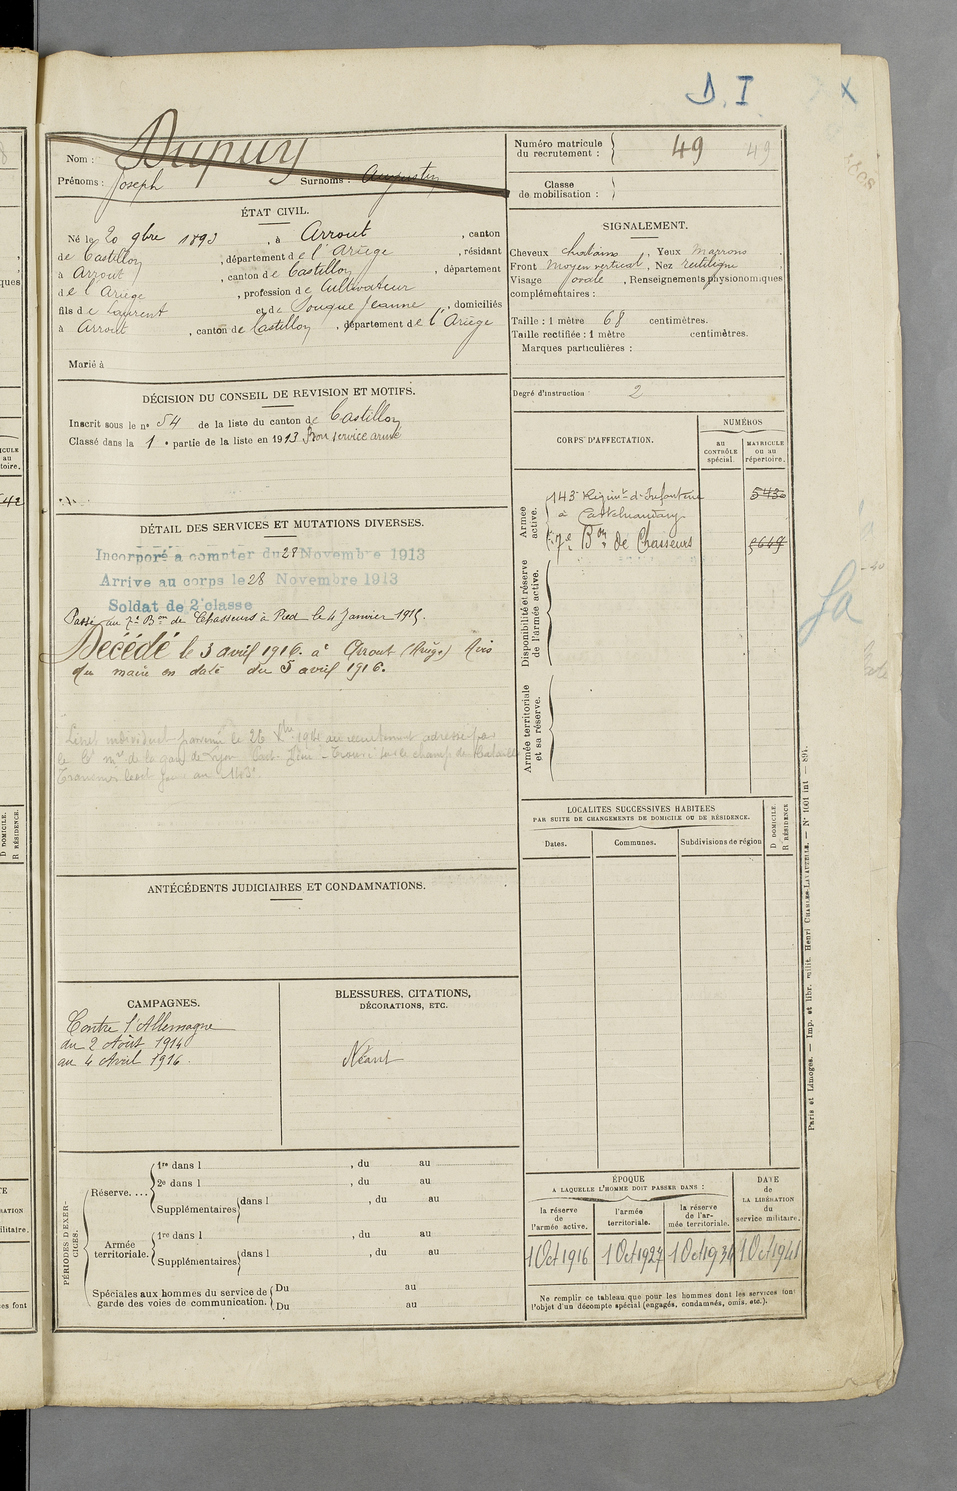 D. I
X
Nom : Dupuy
Prénoms : Joseph Surnoms : Augustin
Numéro matricule du recrutement : 49 49
Classe de mobilisation :
ÉTAT CIVIL.
Né le 20 9bre 1893, à Arrout, canton
de Castillon, département de l'Ariège, résidant
à Arrout, canton de Castillon, département
de l'Ariège, profession de Cultivateur
fils de Laurent et de Souque Jeanne, domiciliés
à Arrout, canton de Castillon, département de l'Ariège
Marié à
SIGNALEMENT.
Cheveux chatains, Yeux Marrons.
Front Moyen vertical, Nez rectiligne
Visage ovale, Renseignements physionomiques
complémentaires :
Taille : 1 mètre 68 centimètres.
Taille rectifiée : 1 mètre centimètres.
Marques particulières :
Degré d'instruction : 2
DÉCISION DU CONSEIL DE REVISION ET MOTIFS.
Inscrit sous le no 54 de la liste du canton de Castillon
Classé dans la 1e partie de la liste en 1913 Bon service armé
DÉTAIL DES SERVICES ET MUTATIONS DIVERSES.
Incorporé a compter du 27 Novembre 1913
Arrive au corps le 28 Novembre 1913
Soldat de 2e classe
Passé au 7e Bon de Chasseurs à Pied le 4 Janvier 1915.
Décédé le 3 avril 1916. à Arrout (Ariège) Avis
du maire en date du 5 avril 1916.
Livret individuel parvenu le 26 Xbre 1914 au recrutement adressé par
le de la gare de Lyon Trouvé sur le champ de Bataille
Transmis le
CORPS D'AFFECTATION.
NUMÉROS
au CONTRÔLE spécial.
MATRICULE ou au répertoire.
Armée active.
143e Régimt d'Infanterie 543
à Castelnaudary
7e Bon de Chasseurs 5649
Disponibilité et réserve de l'armée active.
Armée territoriale et sa réserve.
LOCALITÉS SUCCESSIVES HABITÉES
PAR SUITE DE CHANGEMENTS DE DOMICILE OU DE RÉSIDENCE.
Dates. Communes. Subdivisions de région
D DOMICILE.
R RÉSIDENCE
ANTÉCÉDENTS JUDICIAIRES ET CONDAMNATIONS.
CAMPAGNES.
Contre l'Allemagne
du 2 Août 1914
au 4 Avril 1916.
BLESSURES, CITATIONS,
DÉCORATIONS, ETC.
Néant
PÉRIODES D'EXERCICES.
Réserve....
1re dans l , du au
2e dans l , du au
Supplémentaires dans l , du au
Armée territoriale.
1re dans l , du au
Supplémentaires dans l , du au
Spéciales aux hommes du service de garde des voies de communication.
Du au
Du au
ÉPOQUE
A LAQUELLE L'HOMME DOIT PASSER DANS :
la réserve de l'armée active.
l'armée territoriale.
la réserve de l'armée territoriale.
DATE de LA LIBÉRATION du service militaire.
1 Oct 1916 1 Oct 1927 1 Oct 1934 1 Oct 1941
Ne remplir ce tableau que pour les hommes dont les services font
l'objet d'un décompte spécial (engagés, condamnés, omis, etc.).
Paris et Limoges. — Imp. et libr. milit. Henri CHARLES-LAVAUZELLE. — No 1601 int — 891.